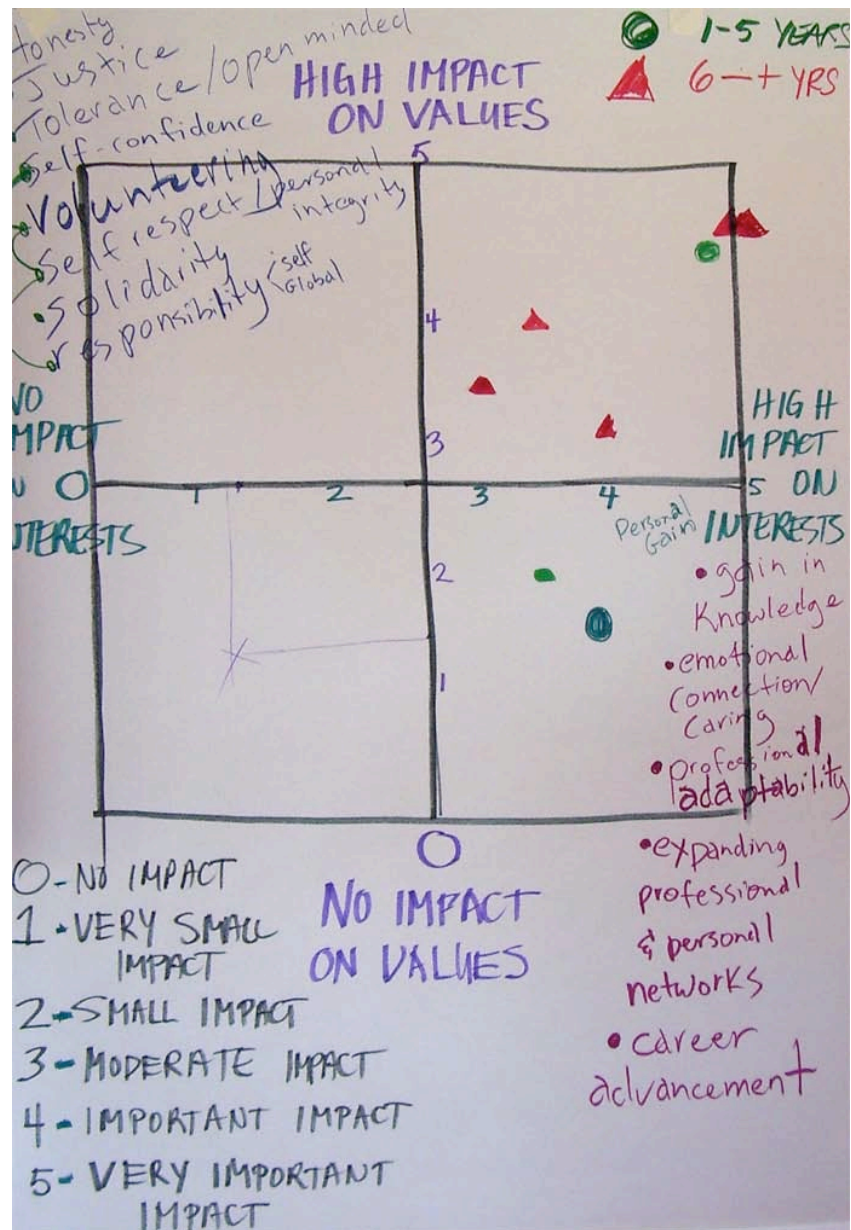 Honesty
Justice
Tolerance/open minded
Self-confidence
Volunteering
Self respect/personal
integrity
Solidarity
responsibility < self
Global
HIGH IMPACT
ON VALUES
1-5 YEARS
6-+ YRS
5
4
3
NO
IMPACT
0
INTERESTS
1
2
3
4
5
HIGH
IMPACT
ON
INTERESTS
Personal
Gain
2
1
0
NO IMPACT
ON VALUES
• gain in
Knowledge
• emotional
Connection/
Caring
• professional
adaptability
• expanding
professional
& personal
networks
• career
advancement
0-NO IMPACT
1-VERY SMALL
IMPACT
2-SMALL IMPACT
3-MODERATE IMPACT
4-IMPORTANT IMPACT
5-VERY IMPORTANT
IMPACT